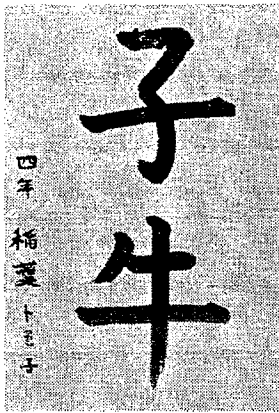 子牛
四年 稲葉 トミ子